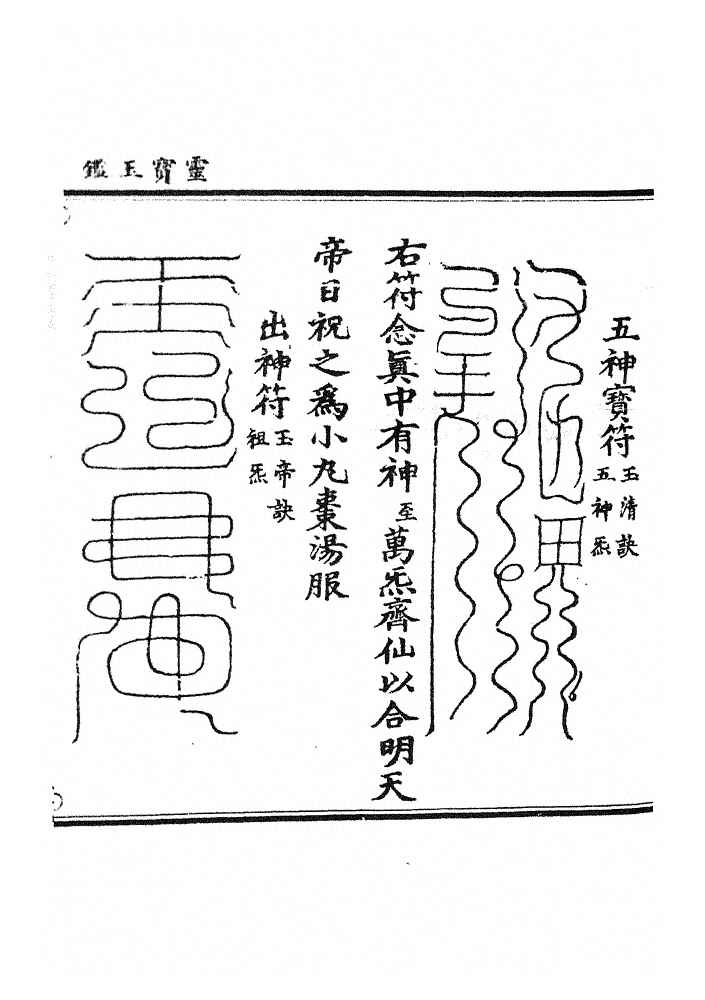 靈寶玉鑑
五神寶符
玉清訣
五神炁
右符念眞中有神至萬炁齊仙以合明天
帝日祝之爲小丸棗湯服
出神符
玉帝訣
祖炁